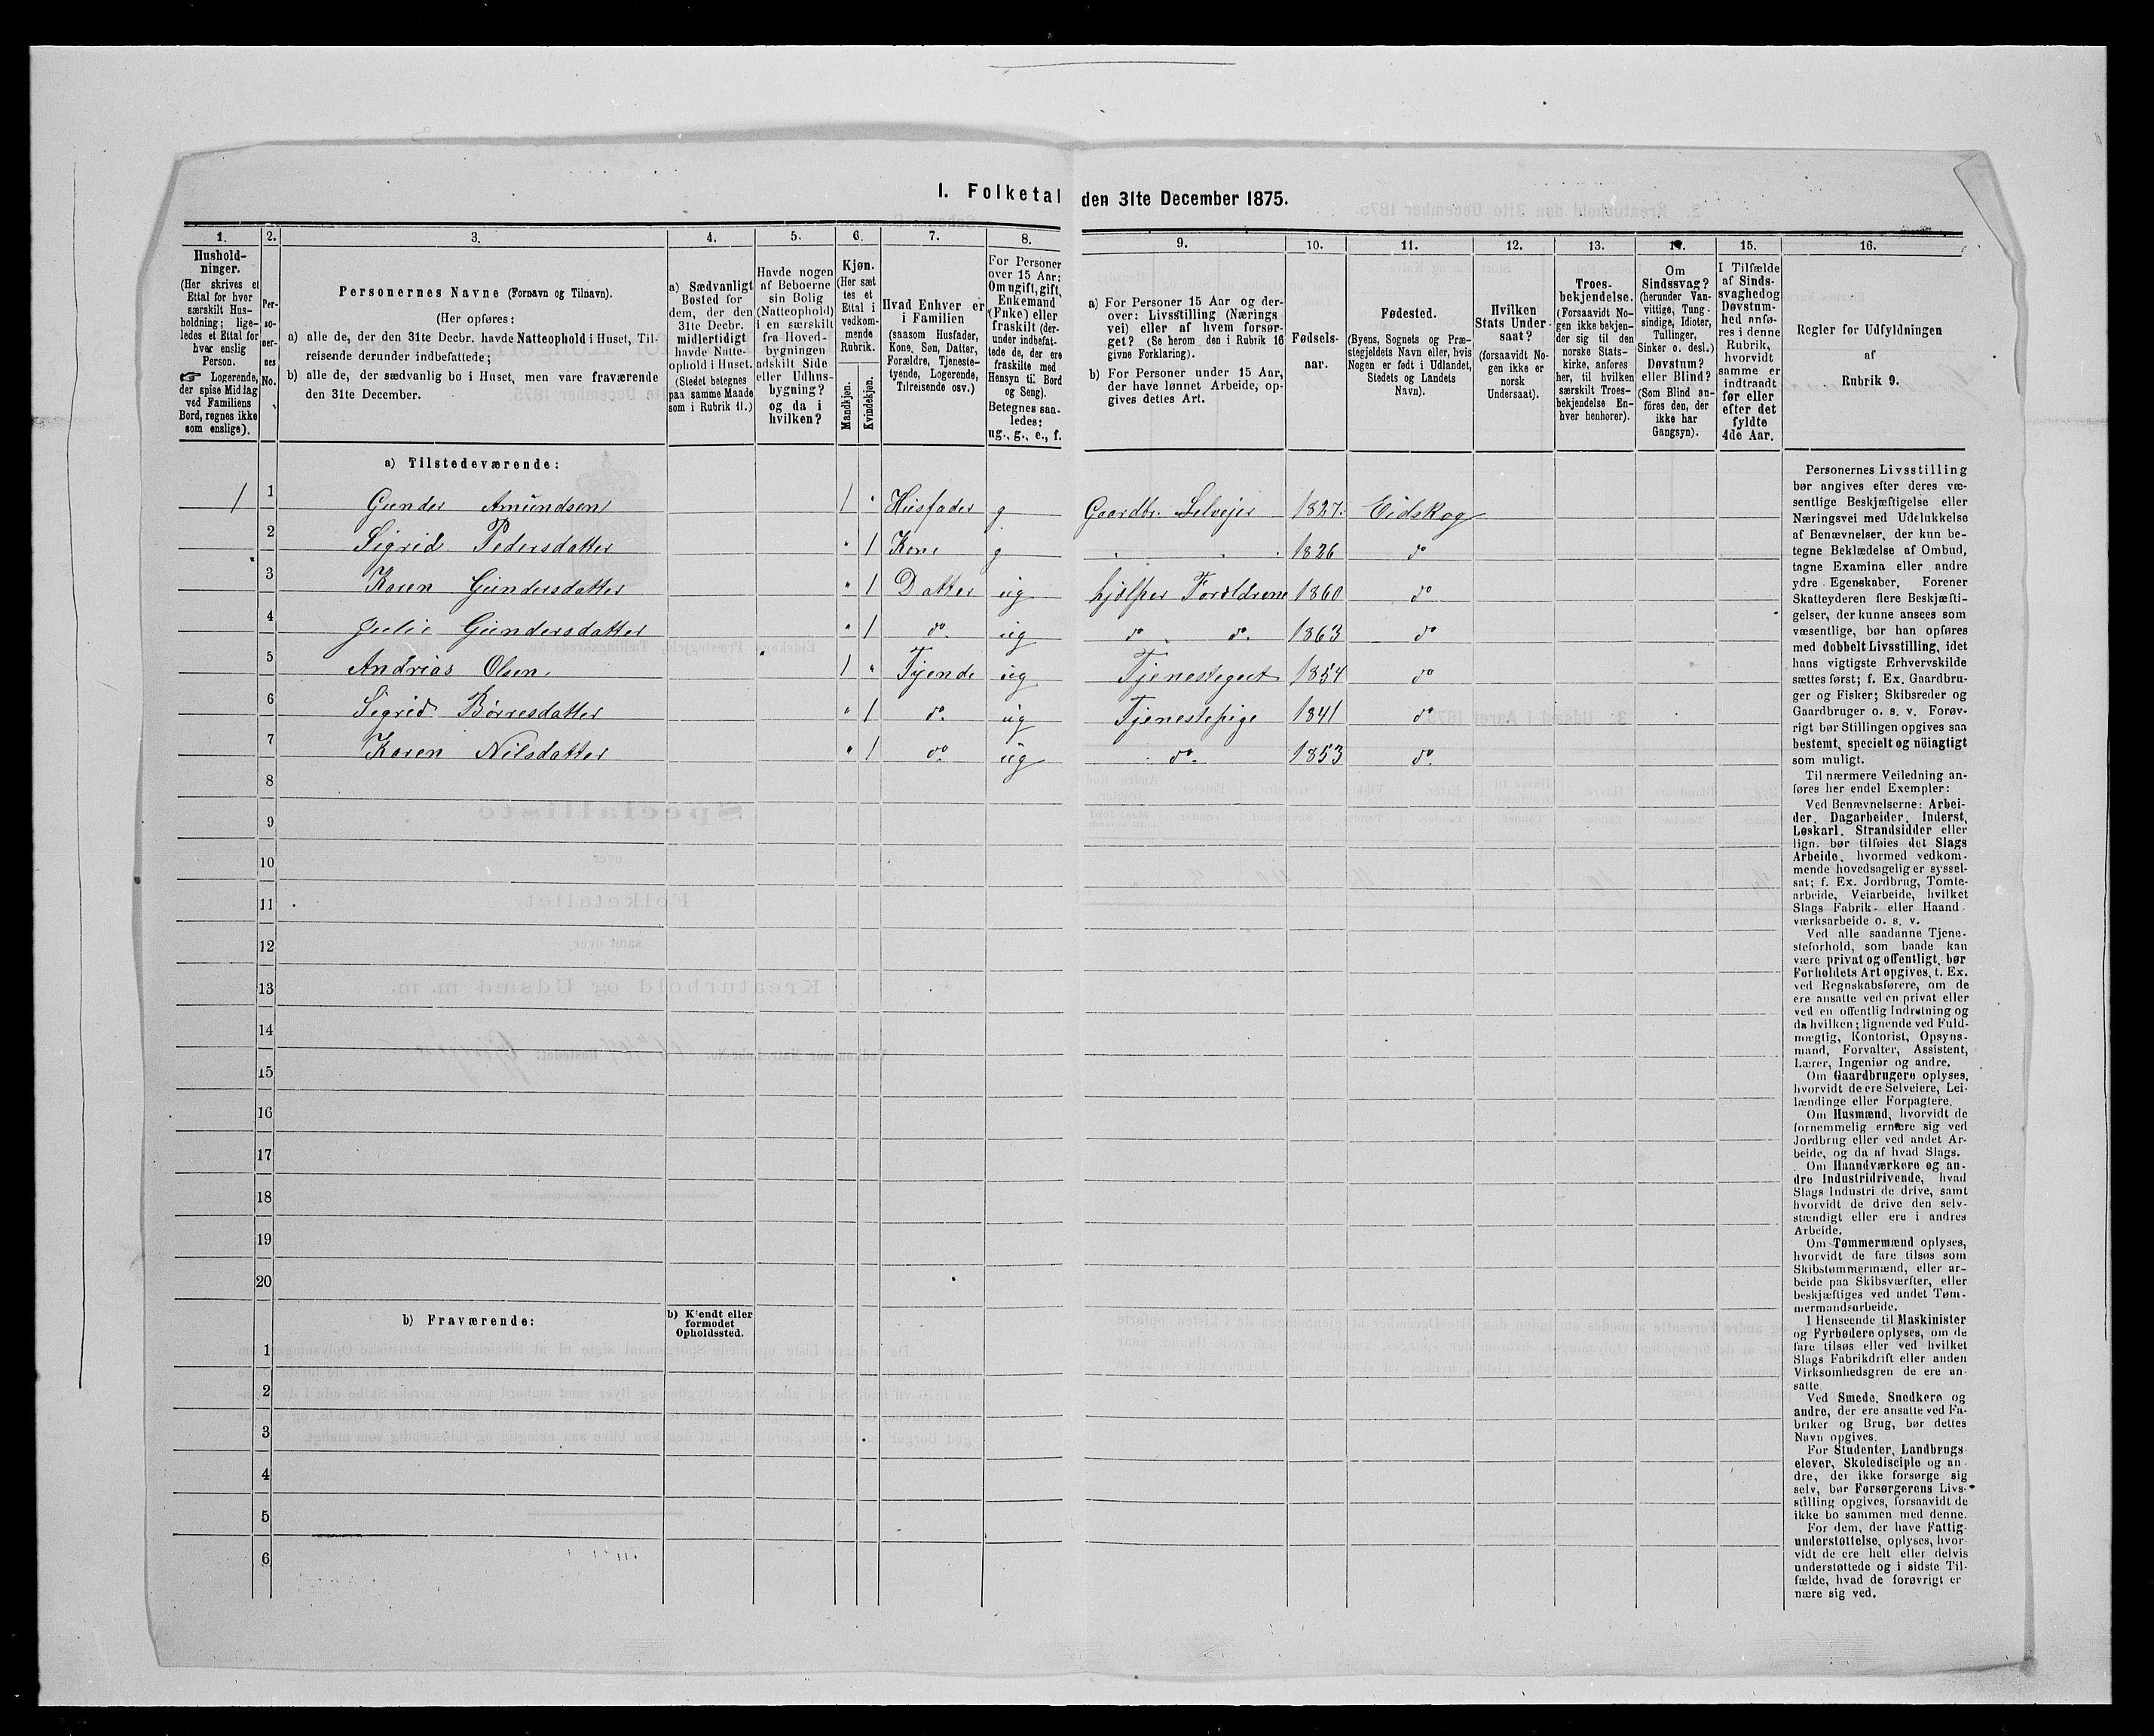 I. Folketal den 31te December 1875.
1.
Hushold-
ninger.
(Her skrives et
Ettal for hver
særskilt Hus-
holdning; lige-
ledes et Ettal for
hver enslig
Person.
☞ Logerende,
der spise Middag
ved Familiens
Bord, regnes ikke
som enslige).
2.
Per-
so-
ner-
nes
No.
3.
Personernes Navne (Fornavn og Tilnavn).
(Her opføres:
a) alle de, der den 31te Decbr. havde Natteophold i Huset, Til-
reisende derunder indbefattede;
b) alle de, der sædvanlig bo i Huset, men vare fraværende
den 31te December.
4.
a) Sædvanligt
Bosted for
dem, der den
31te Decbr.
midlertidigt
havde Natte-
ophold i Huset.
(Stedet betegnes
paa samme Maade
som i Rubrik 11.)
5.
Havde nogen
af Beboerne
sin Bolig
(Natteophold)
i en særskilt
fra Hoved-
bygningen
adskilt Side
eller Udhus-
bygning?
og da i
hvilken?
6.
Kjøn.
(Her sæt
tes et
Ettal i
vedkom-
mende
Rubrik.
Mandkjøn.
Kvindekjøn.
7.
Hvad Enhver er
i Familien
(saasom Husfader,
Kone, Søn, Datter,
Forældre, Tjeneste-
tyende, Logerende,
Tilreisende osv.)
8.
For Personer
over 15 Aar:
Om ugift, gift,
Enkemand
(Enke) eller
fraskilt (der-
under indbefat-
tede de, der ere
fraskilte med
Hensyn til Bord
og Seng).
Betegnes saa-
ledes:
ug., g., e., f.
9.
a) For Personer 15 Aar og der-
over: Livsstilling (Nærings
vei) eller af hvem forsør-
get? (Se herom den i Rubrik 16
givne Forklaring).
b) For Personer under 15 Aar,
der have lønnet Arbeide, op-
gives dettes Art.
10.
Fødsels-
aar.
11.
Fødested.
(Byens, Sognets og Præ-
stegjeldets Navn eller, hvis
Nogen er født i Udlandet,
Stedets og Landets
Navn).
12.
Hvilken
Stats Under-
saat?
(forsaavidt No-
gen ikke er
norsk
Undersaat).
13.
Troes-
bekjendelse.
(Forsaavidt No-
gen ikke bekjen-
der sig til den
norske Stats-
kirke, anføres
her, til hvilken
særskilt Troes-
bekjendelse En-
hver henhører).
14.
Om
Sindssvag?
(herunder Van-
vittige, Tung-
sindige, Idioter,
Tullinger,
Sinker o. desl.)
Døvstum?
eller Blind?
(Som Blind an-
föres den, der
ikke har
Gangsyn).
15.
I Tilfælde
af Sinds-
svaghed og
Døvstum-
hed anfø-
res i denne
Rubrik,
hvorvidt
samme er
indtraadt
før eller
efter det
fyldte
4de Aar.
16.
Regler for Udfyldningen
af
Rubrik 9.
a) Tilstedeværende:
1 1 Gunder Amundsen 1 " Husfader g Gaardbr. Selvejer 1827. Eidskog
2 Sigrid Pedersdatter " 1 Kone g " " " 1826 do
3 Karen Gundersdatter " 1 Datter ug hjælper Forældrene 1860 do
4 Julie Gundersdatter " 1 do. ug do do. 1863 do
5 Andrias Olsen 1 " Tyende ug Tjenestegut 1854 do
6 Sigrid Börresdatter " 1 do. ug Tjenestepige 1841 do
7 Karen Nilsdatter " 1 do. ug do. 1853 do.
8
9
10
11
12
13
14
15
16
17
18
19
20
b) Fraværende:
b) Kjendt eller
formodet
Opholdssted.
1
2
3
4
5
6
Personernes Livsstilling
bør angives efter deres væ-
sentlige Beskjæftigelse eller
Næringsvei med Udelukkelse
af Benævnelser, der kun be-
tegne Beklædelse af Ombud,
tagne Examina eller andre
ydre Egenskaber. Forener
Skatteyderen flere Beskjæfti-
gelser, der kunne ansees som
væsentlige, bør han opføres
med dobbelt Livsstilling, idet
hans vigtigste Erhvervskilde
sættes først; f. Ex. Gaardbru-
ger og Fisker; Skibsreder og
Gaardbruger o. s. v. Forøv-
rigt bør Stillingen opgives saa
bestemt, specielt og nöiagtigt
som muligt.
Til nærmere Veiledning an-
føres her endel Exempler:
Ved Benævnelserne: Arbei-
der, Dagarbeider, Inderst,
Løskarl, Strandsidder eller
lign. bør tilføies det Slags
Arbeide, hvormed vedkom-
mende hovedsagelig er syssel-
sat; f. Ex. Jordbrug, Tomte-
arbeide, Veiarbeide, hvilket
Slags Fabrik- eller Haand-
værksarbeide o. s. v.
Ved alle saadanne Tjene-
steforhold, som baade kan
være privat og offentligt, bør
Forholdets Art opgives, f. Ex.
ved Regnskabsførere, om de
ere ansatte ved en privat eller
ved en offentlig Indretning og
da hvilken; lignende ved Fuld-
mægtig, Kontorist, Opsyns-
mand, Forvalter, Assistent,
Lærer, Ingeniør og andre.
Om Gaardbrugere oplyses,
hvorvidt de ere Selveiere, Lei-
lændinge eller Forpagtere.
Om Husmænd, hvorvidt de
fornemmelig ernære sig ved
Jordbrug eller ved andet Ar-
beide, og da af hvad Slags.
Om Haandværkere og an-
dre Industridrivende, hvad
Slags Industri de drive, samt
hvorvidt de drive den selv-
stændigt eller ere i andres
Arbeide.
Om Tømmermænd oplyses,
hvorvidt de fare tilsøs som
Skibstømmermænd, eller ar-
beide paa Skibsværfter, eller
beskjæftiges ved andet Tøm-
mermandsarbeide.
I Henseende til Maskinister
og Fyrbødere oplyses, om de
fare tilsøs eller ved hvilket
Slags Fabrikdrift eller anden
Virksomhedsgren de ere an-
satte.
Ved Smede, Snedkere og
andre, der ere ansatte ved Fa-
briker og Brug, bør dettes
Navn opgives.
For Studenter, Landbrugs-
elever, Skoledisciple og an-
dre, der ikke forsørge sig
selv, bør Forsørgerens Livs-
stilling opgives, forsaavidt de
ikke bo sammen med denne.
For dem, der have Fattig-
understøttelse, oplyses, hvor-
vidt de ere helt eller delvis
understøttede og i sidste Til-
fælde, hvad de forøvrigt er-
nære sig ved.